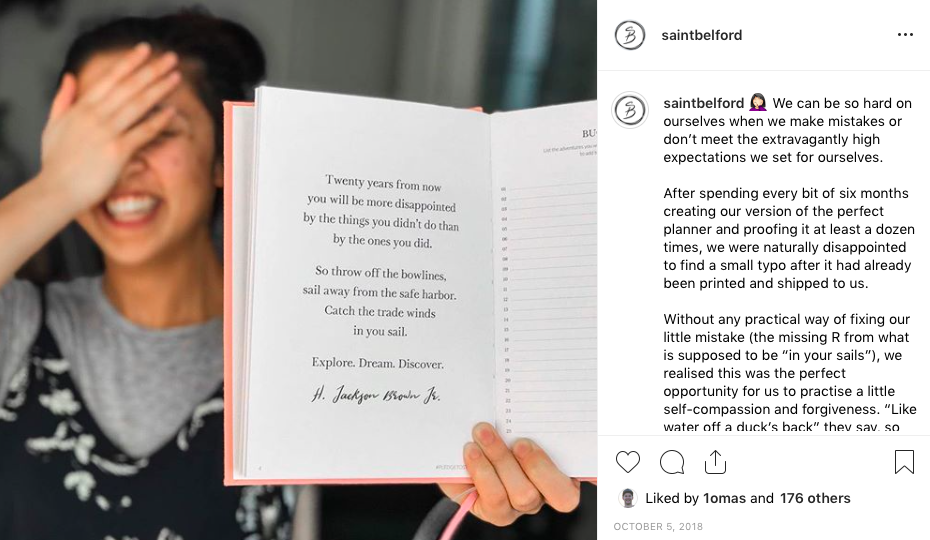 Twenty years from now
you will be more disappointed
by the things you didn't do than
by the ones you did.
So throw off the bowlines,
sail away from the safe harbor.
Catch the trade winds
in you sail.
Explore. Dream. Discover.
H. Jackson Brown Jr.
BU
saintbelford
saintbelford 🤦🏻‍♀️ We can be so hard on
ourselves when we make mistakes or
don't meet the extravagantly high
expectations we set for ourselves.
After spending every bit of six months
creating our version of the perfect
planner and proofing it at least a dozen
times, we were naturally disappointed
to find a small typo after it had already
been printed and shipped to us.
Without any practical way of fixing our
little mistake (the missing R from what
is supposed to be "in your sails"), we
realised this was the perfect
opportunity for us to practise a little
self-compassion and forgiveness. "Like
water off a duck's back" they say, so
Liked by 1omas and 176 others
OCTOBER 5, 2018